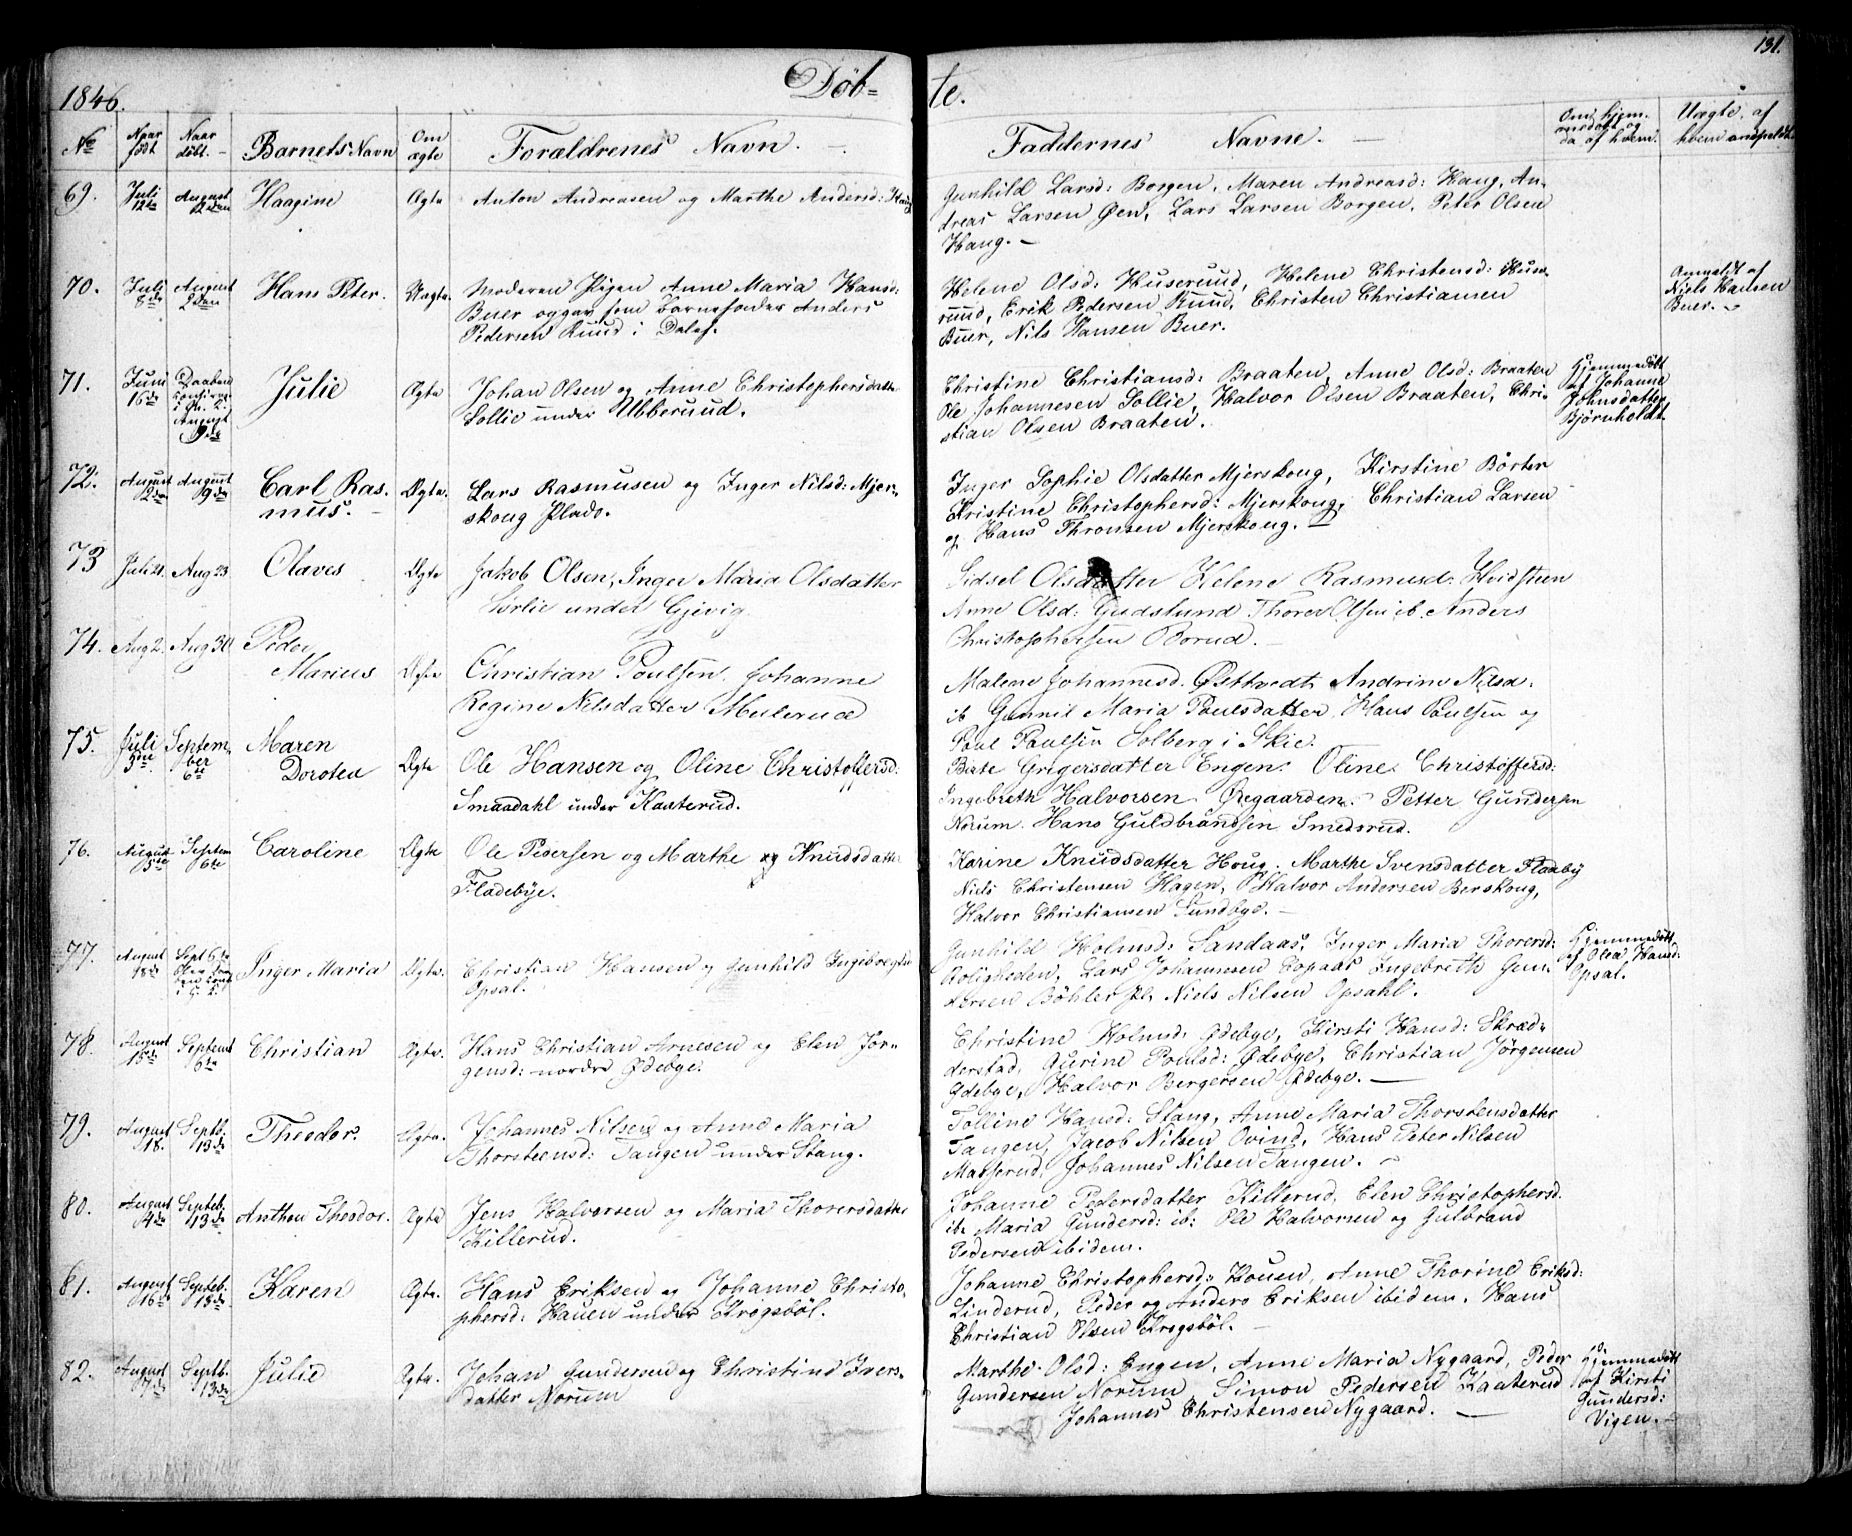 131.
1846. Døb= te.
No Naar født Naar døbt. Barnets Navn Om ægte Forældrenes Navn. Faddernes Navne. Om hjemmedøbt og da af hvem. Uægte, af hvem anmeldt
69. Juli 12te August 2den Haagine Ægte Anton Andreasen og Marthe Andersd: Haug Gunhild Larsd: Borgen, Maren Andreasd: Haug, An-
dreas Larsen Øen, Lars Larsen Borgen, Peter Olsen
Haug. —
70. Juli 8de August 2den Hans Peter. Uægte. Moderen Pigen Anne Maria Hansd: Helene Olsd: Huseruud, Helene Christensd: Huse- Anmeldt af
Buer opgav som Barnefader Anders ruud, Erik Pedersen Ruud, Christen Christiansen Niels Hansen
Pedersen Ruud i Dalef. Buer, Nils Hansen Buer. Buer. —
71. Juni 16de Daaben confirm: i Ør. K. August 9de Julie Ægte Johan Olsen og Anne Christophersdatter Christine Christiansd: Braaten, Anne Olsd: Braaten Hjemmedøbt
Sollie under Ubberuud. Ole Johannesen Sollie, Halvor Olsen Braaten, Chri- af Johanne
stian Olsen Braaten. Johnsdatter
Bjørnholdt.
72. August 2den August 9de Carl Ras- Ægte. Lars Rasmusen og Inger Nilsd: Mjer- Inger Sophie Olsdatter Mjerskoug, Kirstine Børter
mus. — skoug Plads. Kristine Christophersd: Mjerskoug, Christian Larsen
og Hans Thronsen Mjerskoug. —
73 Juli 21 Aug 23 Olaves Ægte Jakob Olsen, Inger Maria Olsdatter Sidsel Olsdatter Helene Rasmusd: Hvidsteen
Sørlie under Gjevig Anne Olsd: Gudslund Thorer Olsen ib. Anders
Christophersen Borud. —
74. Aug 2. Aug 30 Peder
Marius Ægte Christian Poulsen. Johanne Malene Johannesd. Østtvedt, Andrine Nilsd.
Regine Nilsdatter Mulerud ib Gunnil Maria Poulsdatter, Hans Poulsen og
Poul Poulsen Solberg i Skie.
75. Juli 5te September 6te Maren
Dorotea Ægte Ole Hansen og Oline Christoffersd: Birte Grigersdatter Engen. Oline Christoffersd:
Smaadahl under Kaaterud. Ingebreth Halvorsen Øregaarden. Petter Gundersen
Norum. Hans Guldbrandsen Smedsrud.
76. August 5te Septem 6te Caroline Ægte Ole Pedersen og Marthe Knudsdatter Karine Knudsdatter Houg. Marthe Svensdatter Fladby
Fladebye. Niels Christensen Hagen, Halvor Andersen Berskoug,
Halvor Christiansen Sundbye. —
77. August 18de Sept 6te Inger Maria Ægte. Christian Hansen og Gunhild Ingeborgsd. Gunhild Holmsd: Sandaas, Inger Maria Thorersd: Hjemmedøbt
Opsal. Roligheden, Lars Johannesen Sopaas Ingebreth Gun- af Olea Hansd:
dersen Bøhler Pl., Niels Nilsen Opsahl. Opsal.
78. August 15de Septemb 6te Christian Ægte. Hans Christian Arnesen og Elen Jør- Christine Holmsd: Ødebye, Kirsti Hansd: Skræd-
gensd: nordre Ødebye. derstad, Gurine Poulsd: Ødebye, Christian Jørgensen
Ødebye, Halvor Bergersen Ødebye. —
79. August 18. Septb: 13de Theodor. Ægte. Johannes Nilsen og Anne Maria Tolline Hansd: Stang, Anne Maria Thorstensdatter
Thorsteensd: Tangen under Stang. Tangen, Jacob Nilsen Ovind, Hans Peter Nilsen
Matserud, Johannes Nilsen Tangen. —
80. August 4de Septeb. 13de Anthon Theodor. Ægte Jens Halvorsen og Maria Thorersdatter Johanne Pedersdatter Killerud, Elen Christophersd.
Killerud. ib. Maria Gundersd: ib: Ole Halvorsen og Gulbrand
Pedersen ibidem.
81. August 16de Septeb. 13de Karen Ægte. Hans Eriksen og Johanne Christo- Johanne Christophersd: Houen, Anne Thorine Eriksd:
phersd: Hauen under Krogsbøl. Linderud, Peder og Anders Eriksen ibidem. Hans
Christian Olsen Krogsbøl. —
82. August 7de Septb. 13de Julie Ægte. Johan Gundersen og Christine Ivers- Marthe Olsd: Engen, Anne Maria Nygaard, Peder Hjemmedøbt
datter Norum Gundersen Norum, Simon Pedersen Kaaterud af Kirsti
Johannes Christensen Nygaard. — Gundersd:
Vigen. —